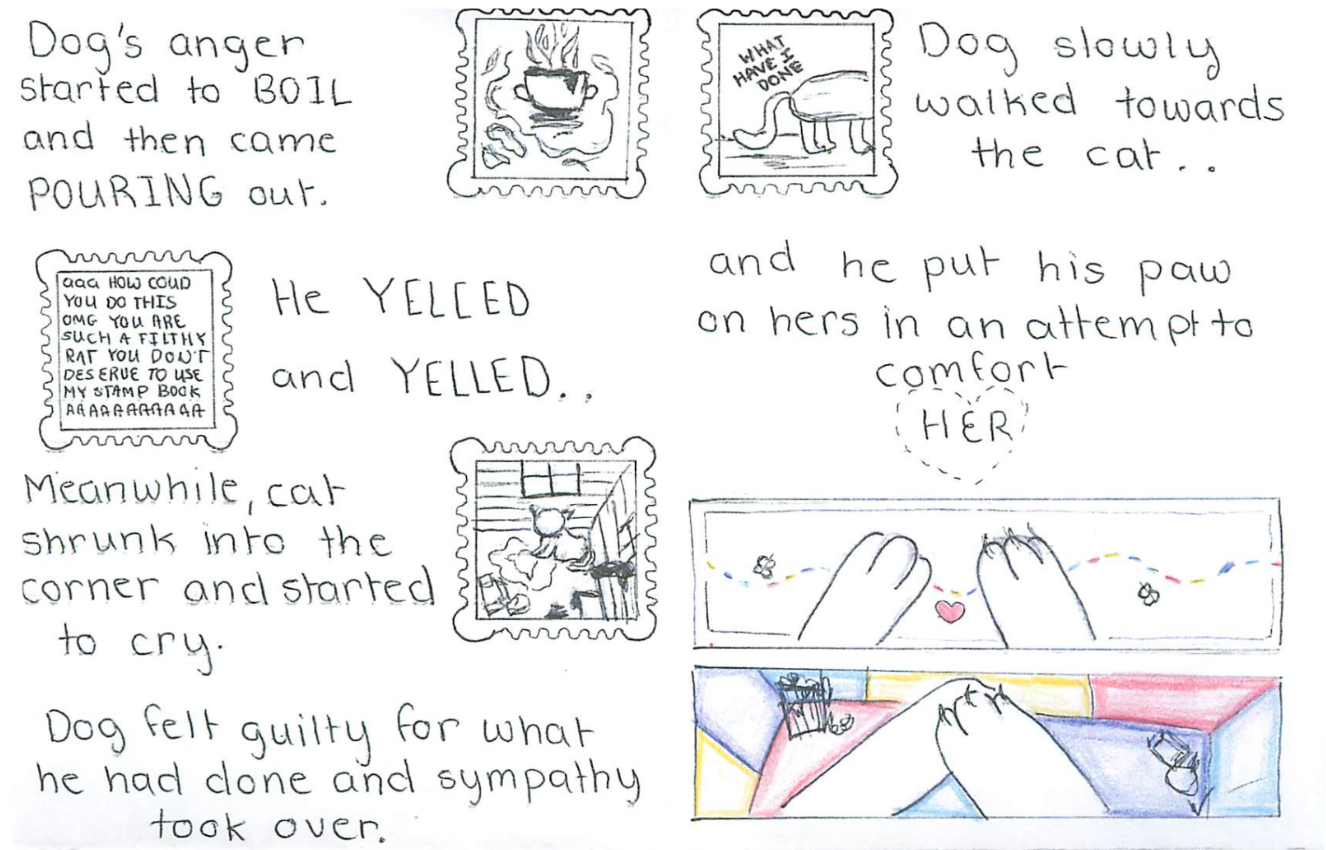 Dog's anger
started to BOIL
and then came
POURING out.
aaa HOW COUD
YOU DO THIS
OMG YOU ARE
SUCH A FILTHY
RAT YOU DON'T
DESERVE TO USE
MY STAMP BOOK
AAAAAAAAAAAA
He YELLED
and YELLED..
Meanwhile, cat
shrunk into the
corner and started
to cry.
Dog felt guilty for what
he had done and sympathy
took over.
WHAT
HAVE I
DONE
Dog slowly
walked towards
the cat..
and he put his paw
on hers in an attempt to
comfort
HER